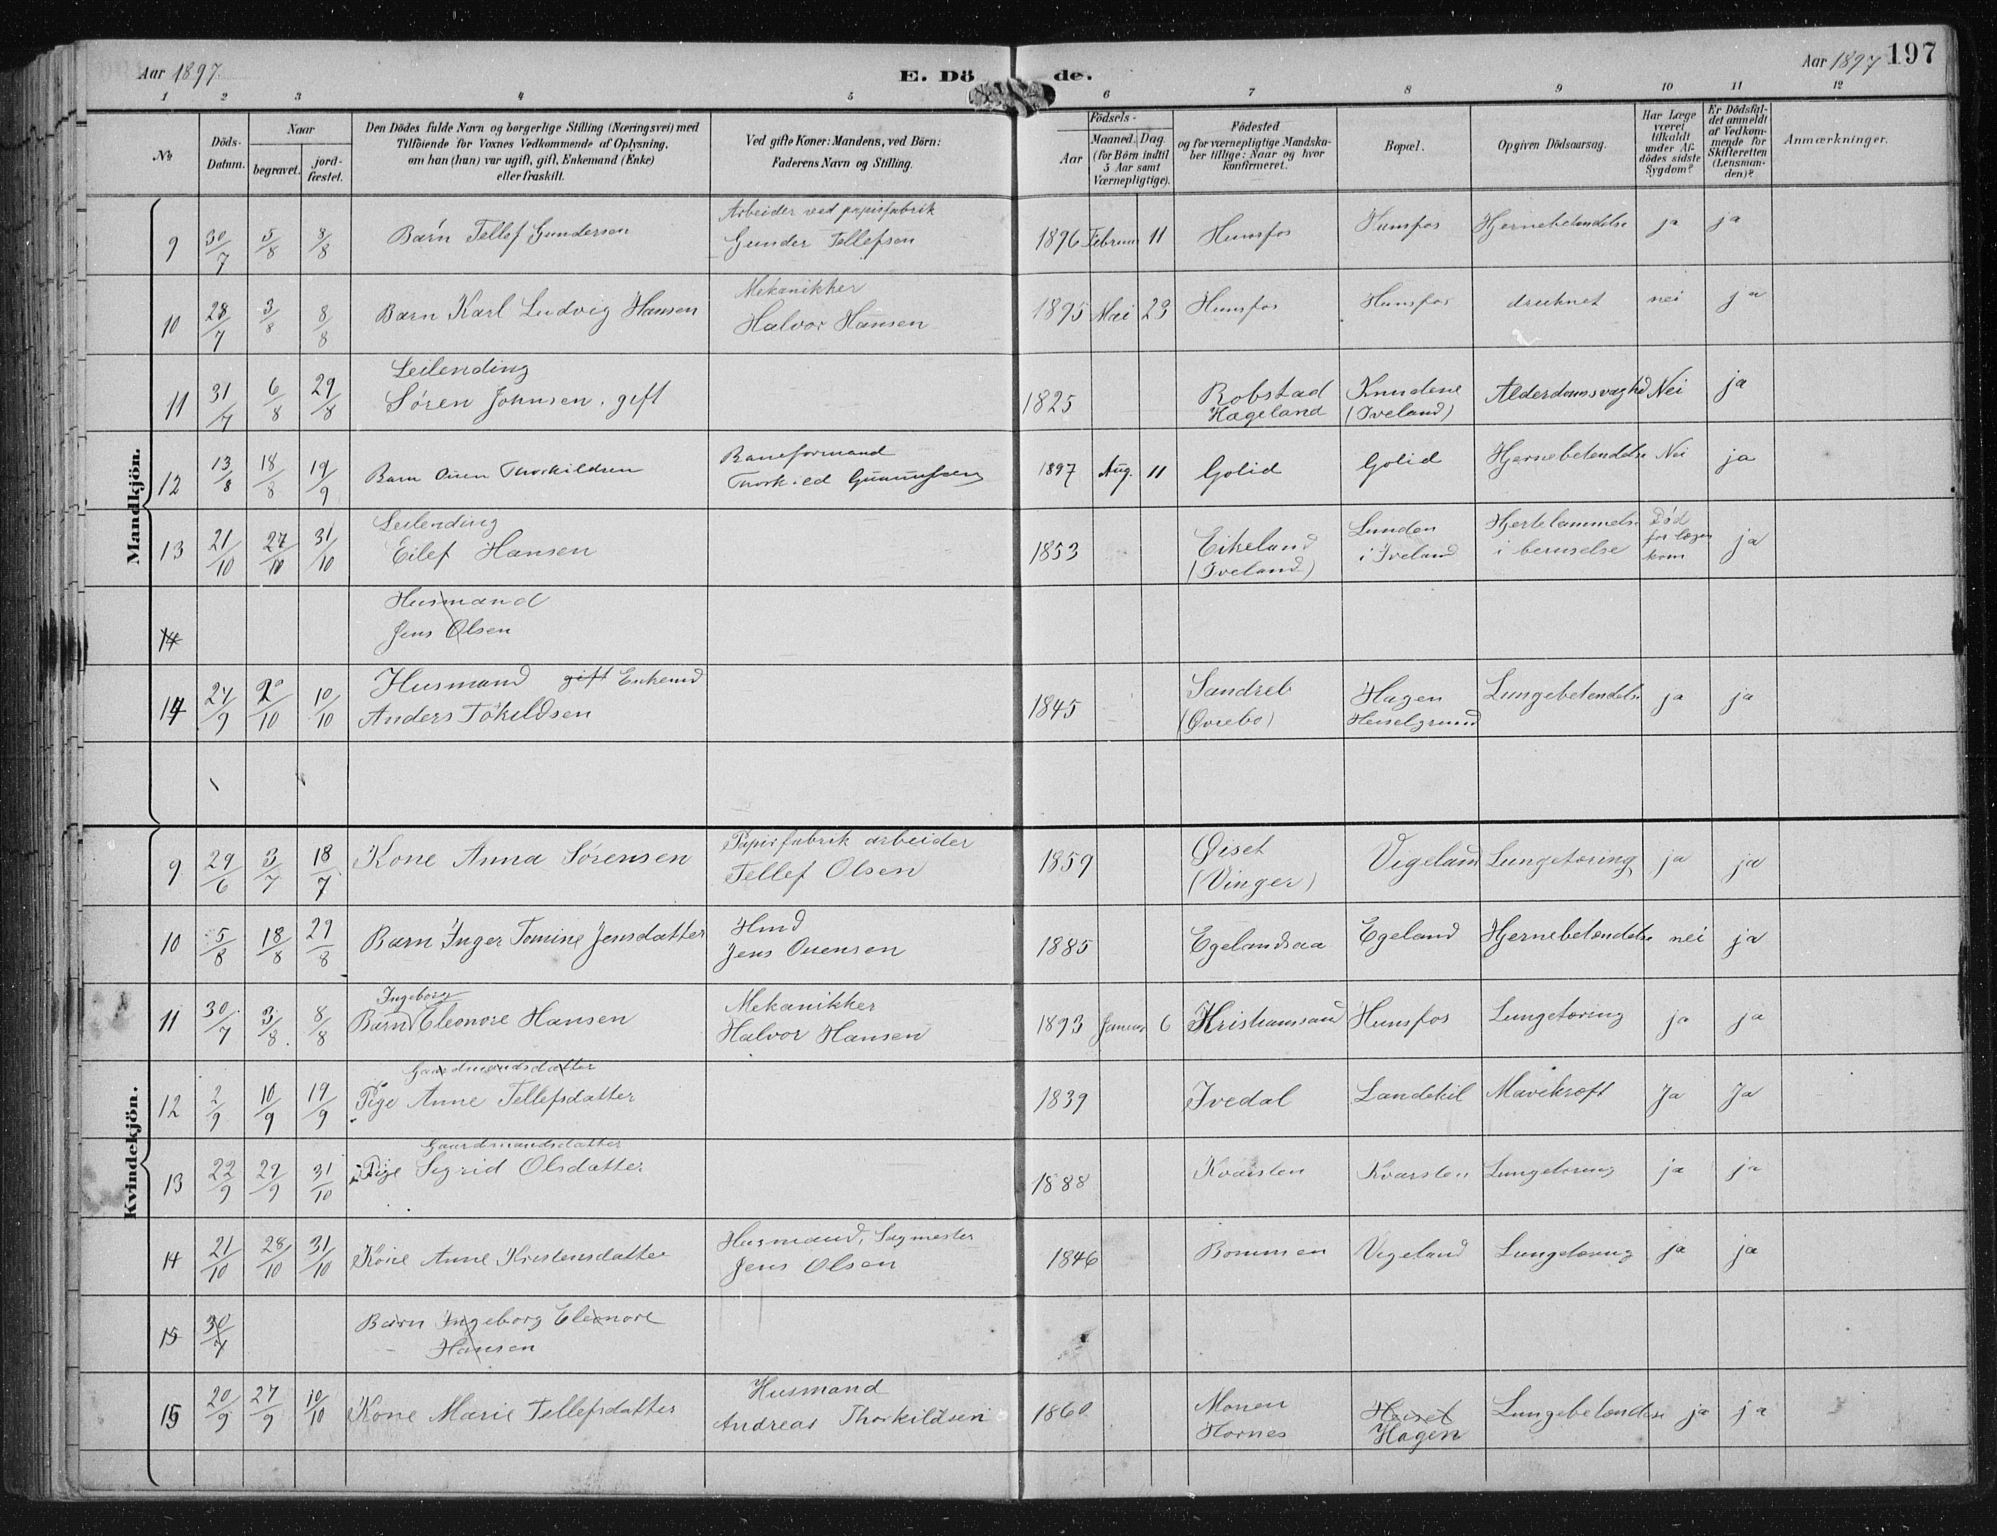 Aar 1897.
E. Dö de.
Aar 1897 197
1 2 3 4 5 6 7 8 9 10 11 12
No
Döds-Datum.
Naar
begravet.
jord-fæstet.
Den Dödes fulde Navn og borgerlige Stilling (Næringsvei) med
Tilföiende for Voxnes Vedkommende af Oplysning,
om han (hun) var ugift, gift, Enkemand (Enke)
eller fraskilt.
Ved gifte Koner: Mandens, ved Börn:
Faderens Navn og Stilling.
Födsels-
Aar
Maaned. Dag.
(for Börn indtil
5 Aar samt
Værnepligtige).
Födested
og for værnepligtige Mandska-
ber tillige: Naar og hvor
konfirmeret.
Bopæl.
Opgiven Dödsaarsag.
Har Læge
været
tilkaldt
under Af-
dödes sidste
Sygdom?
Er Dödsfal-
det anmeldt
af Vedkom-
mende for
Skifteretten
(Lensman-
den)?
Anmærkninger.
Mandkjön.
Arbeider ved papirfabrik
9 30/7 5/8 8/8 Barn Tellef Gundersen Gunder Tellefsen 1896 Februar 11 Hunsfos Hunsfos Hjernebetendelse ja ja
Mekanikker
10 28/7 3/8 8/8 Barn Karl Ludvig Hansen Halvor Hansen 1895 Mai 23 Hunsfos Hunsfos druknet nei ja
Leilending
11 31/7 6/8 29/8 Sören Johnsen. gift 1825 Robstad Knudene Alderdomsvaghed Nei ja
Hægeland (Iveland)
Baneformand
12 13/8 18/8 19/9 Barn Ouen Thorkildsen 1897 Aug. 11 Golid Golid Hjernebetendelse Nei ja
Leilending Lunden Hjertelammelse Död
13 21/10 27/10 31/10 Eilef Hansen 1853 Eikeland i Iveland i beruselse før lægen kom ja
(Iveland)
Husmand
14 Jens Olsen
Husmand gift Enkemd
14 27/9 2/10 10/10 Anders Tökildsen 1845 Sandreb Hagen Lungebetendelse ja ja
(Øvrebø)
Kvindekjön.
Papirfabrik arbeider
9 29/6 3/7 18/7 Kone Anna Sörensen Tellef Olsen 1859 Øiset Vigeland Lungetæring ja ja
(Vinger)
Hmd
10 5/8 18/8 29/8 Barn Inger Tomine Jensdatter Jens Ouensen 1885 Egelandsaa Egeland Hjernebetændelse nei ja
Ingeborg Mekanikker
11 30/7 3/8 8/8 Barn Eleonore Hansen Halvor Hansen 1893 Januar 6 Kristianssand Hunsfos Lungetæring ja ja
Gaardmandsdatter
12 2/9 10/9 19/9 Pige Anne Tellefsdatter 1839 Ivedal Landekil Mavekræft Ja Ja
Gaardmandsdatter
13 22/9 29/9 31/10 Pige Sigrid Olsdatter 1888 Kvarsten Kvarsten Lungetæring ja ja
Husmand, Sagmester
14 21/10 28/10 31/10 Kone Anne Kristensdatter Jens Olsen 1846 Bommen Vigeland Lungetæring ja ja
15 30/7 Barn Ingeborg Eleonore
Hansen
Husmand
15 20/9 27/9 10/10 Kone Marie Tellefsdatter Andreas Thorkildsen 1860 Monen Heiset Lungebetændelse ja ja
Hornes Hagen